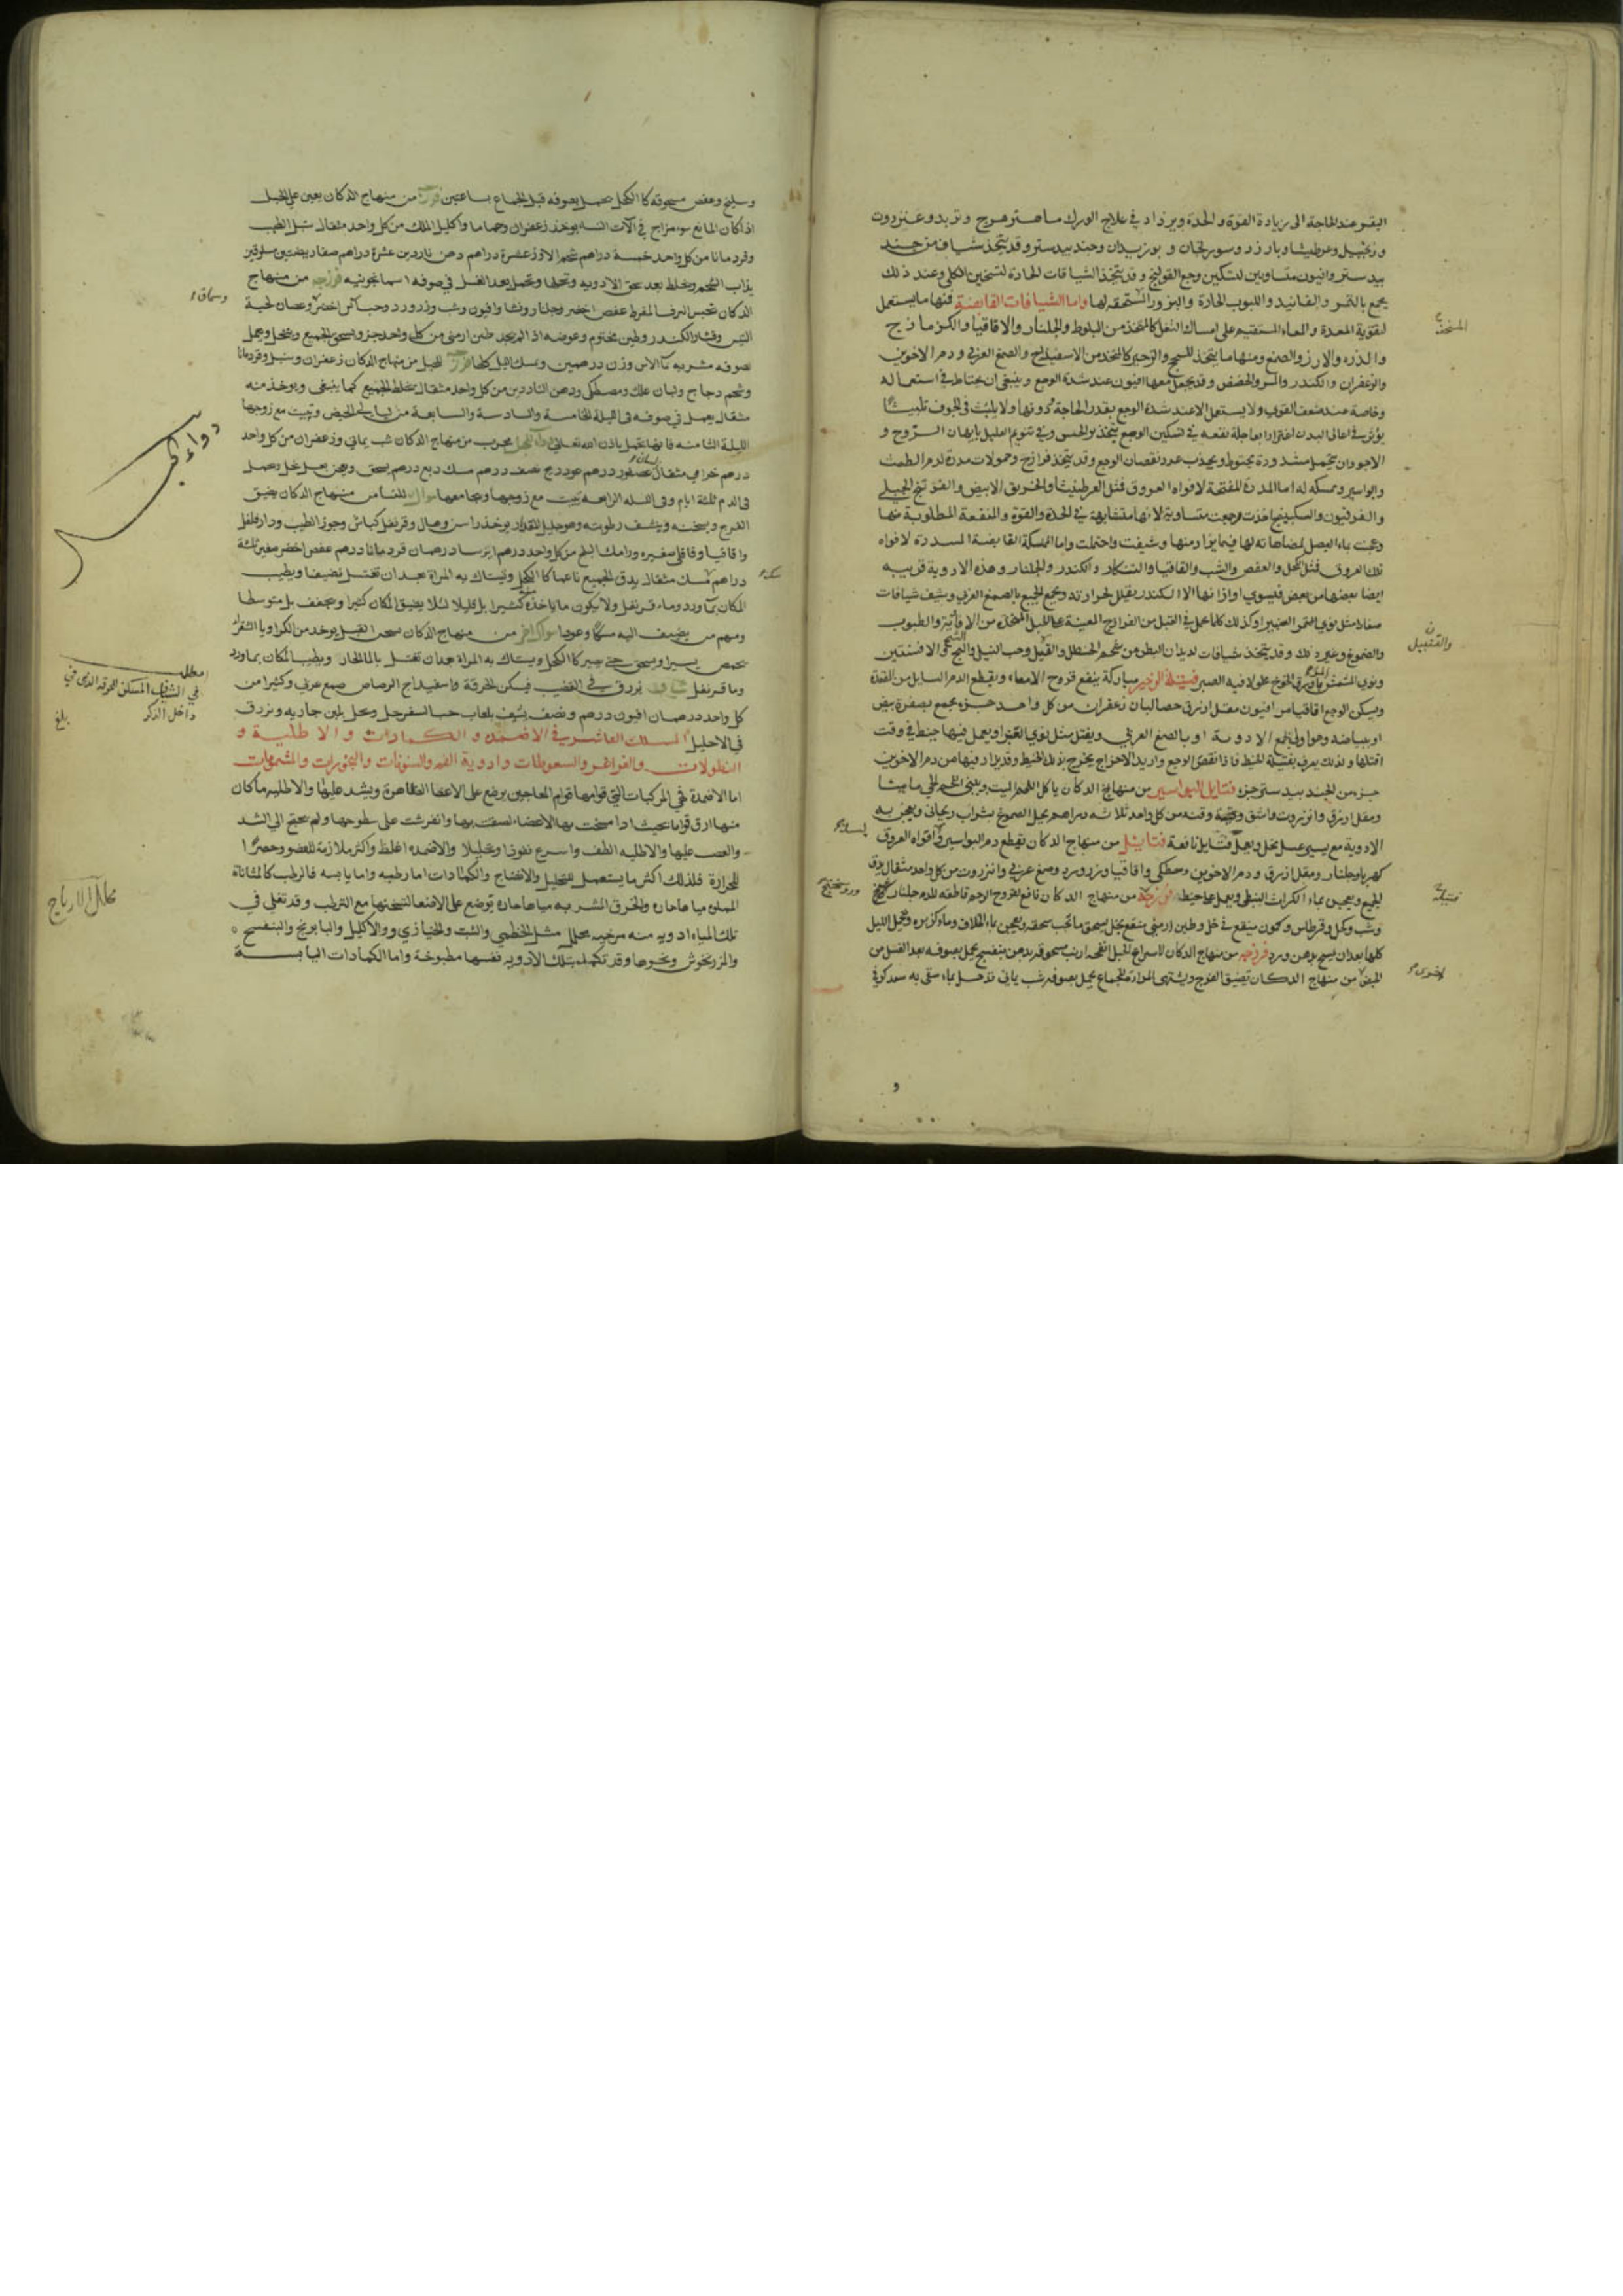 البقر عند الحاجة الى زيادة القوة والحدة ويزاد في علاج الورك ماهى زهرج وتربد وعنزروت
وزنجبيل وعرطنيثا وبارزد وسورنجان و بوزيدان وجند بيدستر وقد يتخذ شياف من جند
بيدستر وافيون متساويين لتسكين وجع القولنج وقد يتخذ الشيافات الحادة لتسخين الكلى وعند ذلك
يجمع بالتمر والفانيد واللبوب الحارة والبزور المسخنة لها واما الشيافات القابضة فمنها ما يستعمل
لتقوية المعدة والمعاء المستقيم على امساك الثفل كالمتخذ من البلوط والجلنار والاقاقيا والكزمازج
والذرة والارز والصمغ ومنها ما يتخذ للسحج والزحير كالمتخذ من الاسفيداج والصمغ العربي ودم الاخوين
والزعفران والكندر والمر والحضض وقد يجعل معها افيون عند شدة الوجع وينبغي ان يحتاط في استعماله
وخاصة عند ضعف القوي ولا يستعمل الا عند شدة الوجع بقدر الحاجة دونها ولا يلبث في الجوف تلبيثا
يؤثر في اعالي البدن اغترارا بعاجلة نفعه في تسكين الوجع
الاجود ان يتحمل مشدودة بخيوط ويجذب عند نقصان الوجع وقد يتخذ فرازج وحمولات مدرة لدم الطمث
والبواسير وممسكة له اما المدرة المفتحة لافواه العروق فمثل العرطنيثا والخربق الابيض والفوتنج الجبلي
والفرفيون والسكبينج اخذت وجمعت متساوية لانها متشابهة في الحدة والقوة والمنفعة المطلوبة منها
وعجنت بماء البصل لمضاهاته لها فيما يراد منها وشيفت واحتملت واما الممسكة القابضة المسددة لافواه
تلك العروق فمثل الكحل والعفص والشب والقاقيا والتنكار والكندر والجلنار وهذه الادوية قريبة
ايضا بعضها من بعض فيسوي اوزانها الا الكندر يقلل لحرارته ويجمع الجميع بالصمغ العربي ويشيف شيافات
صغارا مثل نوي التمر الصغير او كذلك كلما عمل في القبل من الفرازج المعينة على الحبل المتخذة من الافاويه والطيوب
والصموغ وغير ذلك وقد يتخذ شيافات لديدان البطن من شحم الحنظل والقيل وحب النيل والشيح والافسنتين
ونوي المشمش وورق الخوخ فتيلة الزحير مباركة ينفع قروح الامعاء ويقطع الدم السايل من المقعدة
ويسكن الوجع اقاقيا مر افيون مقل ازرق حصالبان زعفران من كل واحد جزء يجمع بصفرة بيض
او بياضه وهو اولى بجمع الادوية او بالصمغ العربي ويفتل مثل نوي التمر ويعمل فيها خيط في وقت
فتلها ولذلك يعرف بفتيلة الخيط فاذا نقص الوجع واريد الاخراج يخرج بذلك الخيط وقد يزاد فيها من دم الاخوين
جزء من الجند بيدستر جزء فتايل البواسير من منهاج الدكان ياكل اللحم الميت ويبني اللحم الحي
ومقل ازرق وانزروت واشق وقنه من كل واحد ثلاثه دراهم يحل الصموغ بشراب ريحاني ويعجن به
الادوية مع يسير عسل نحل ويعمل فتايل نافعة فتايل من منهاج الدكان يقطع دم البواسير وافواه العروق
كهربا وجلنار ومقل ازرق ودم الاخوين ومصطكي واقاقيا وبزر ورد وصمغ عربي وانزروت من كل واحد مثقال يدق
الجميع ويعجن بماء الكراث النبطي ويعمل بها خيط فرزجة من منهاج الدكان نافع لقروح الرحم قاطعة للدم جلنار
وشب وكحل وقرطاس وكمون منقع في خل وطين ارمني منقع بخل يسحق ما تجب سحقه ويعجن بماء الخلاف وماء كزبره وتحمل الليل
كلها بعد ان يسح بدهن ورد فرزجه من منهاج الدكان لاسراع الحبل انفحه ارنب مسحوقة بدهن بنفسج يحمل بصوفه بعد الغسل من
الحيض من منهاج الدكان تضيق الفرج ويشهى المراة للجماع يحمل بصوفه شب يماني سعد كوفي
المتخذ
والقنبيل
فتيلة
اخرى
وسليخ وعفص مسحوقه كالكحل يحمل بصوفه قبل الجماع بساعتين فرزجة من منهاج الدكان يعين على الحبل
اذا كان المانع سوء مزاج في الآت النسا يوخذ زعفران وحماما واكليل الملك من كل واحد مثقال سنبل الطيب
وقردمانا من كل واحد خمسة دراهم شحم الاوز عشرة دراهم دهن ناردين عشرة دراهم صفار بيضتين مسلوقتين
يذاب الشحم ويخلط بعد سحق الادويه ونخلها وتحمل بعد الغسل في صوفه اسمانجونيه فرزجه من منهاج
الدكان تحبس النزف المفرط عفص اخضر وجلنار ونشا وافيون وشب وزر ورد وحب آس اخضر وعصارة لحية
التيس وقشار الكندر وطين مختوم وعوضه اذا لم يوجد طين ارمني من كل واحد جزو يسحق الجميع وينخل ويحمل
بصوفه مشربه بماء الآس وزن درهمين ويمسك الليل كله فرزجة للحبل من منهاج الدكان زعفران وسنبل وقردمانا
وشحم دجاج ولبان علك ومصطكى ودهن الناردين من كل واحد مثقال يخلط الجميع كما ينبغي ويوخذ منه
مثقال يعمل في صوفه في الليلة الخامسة والسادسة والسابعة من ليالي الحيض وتبيت مع زوجها
الليلة الثامنه فانها تحبل باذن الله تعالى دواء للحبل مجرب من منهاج الدكان شب يماني وزعفران من كل واحد
درهم خزامى مثقال عصفور درهم عود درج نصف درهم مسك ربع درهم يسحق ويعجن بعسل نحل وتحمل
في الدم ثلثة ايام وفي الليله الرابعه تبيت مع زوجها ويجامعها سواك للنسا من منهاج الدكان يضيق
الفرج ويسخنه وينشف رطوبته وهو جليل المقدار يوخذ راسن وهيل وقرنفل كباش وجوز الطيب ودارفلفل
واقاقيا وقاقلى صغيره ورامك البلح من كل واحد درهم درهمان قردمانا درهم عفص اخضر صغير ثلثة
دراهم مسك مثقال يدق الجميع ناعما كالكحل وتستاك به المراة بعد ان تغتسل نضيفا ويطيب
المكان بماورد وماء قرنفل ولا يكون ما ياخذه كثيرا بل قليلا لئلا يضيق المكان كثيرا ويجفف بل متوسطا
ومنهم من يضيف اليه سكا وعودا سواك اخر من منهاج الدكان يسخن القبل يوخذ من الكراويا الشقر
يحمص يسيرا ويسحق حتى يصير كالكحل ويستاك به المراة بعد ان تغتسل بالما الحار ويطيب المكان بماورد
وما قرنفل شياف يزرق في القضيب فيسكن الحرقة واسفيداج الرصاص صمغ عربي وكثيرا من
كل واحد درهمان افيون درهم ونصف يشيف بلعاب حب السفرجل ويحل بلبن جاريه ويزرق
في الاحليل المسلك العاشر في الاضمدة والكمادات والاطلية و
النطولات والغراغر والسعوطات وادوية الفم والسنونات والبخورات والمشمومات
اما الاضمدة فهي المركبات التي قوامها قوام المعاجين يوضع على الاعضا الظاهرة ويشد عليها والاطليه ما كان
منها ارق قواما بحيث اذا مسحت بها الاعضاء لصقت بها وانفرشت على سطوحها ولم يحتج الى الشد
والعصب عليها والاطليه الطف واسرع نفوذا وتحليلا والاضمده اغلظ واكثر ملازمة للعضو وحصرا
للحرارة فلذلك اكثر ما يستعمل للتحليل والانضاج والكمادات اما رطبه واما يابسه فالرطب كالمثانة
المملوءة مياها حاره والخرق المشربه مياها حاره توضع على الاعضا لتسخنها مع الترطب وقد تغلى في
تلك المياه ادويه منه مرخيه محلله مثل الخطمي والشبت والخبازي والاكليل والبابونج والبنفسج
والمرزنجوش ونحوها وقد تكمد بتلك الادويه نفسها مطبوخة واما الكمادات اليابسة
وسماق
دواء الحبل
مطلب
في الشياف المسكن للحرقه الذي في
داخل الذكر
بلغ
محلل الارياح